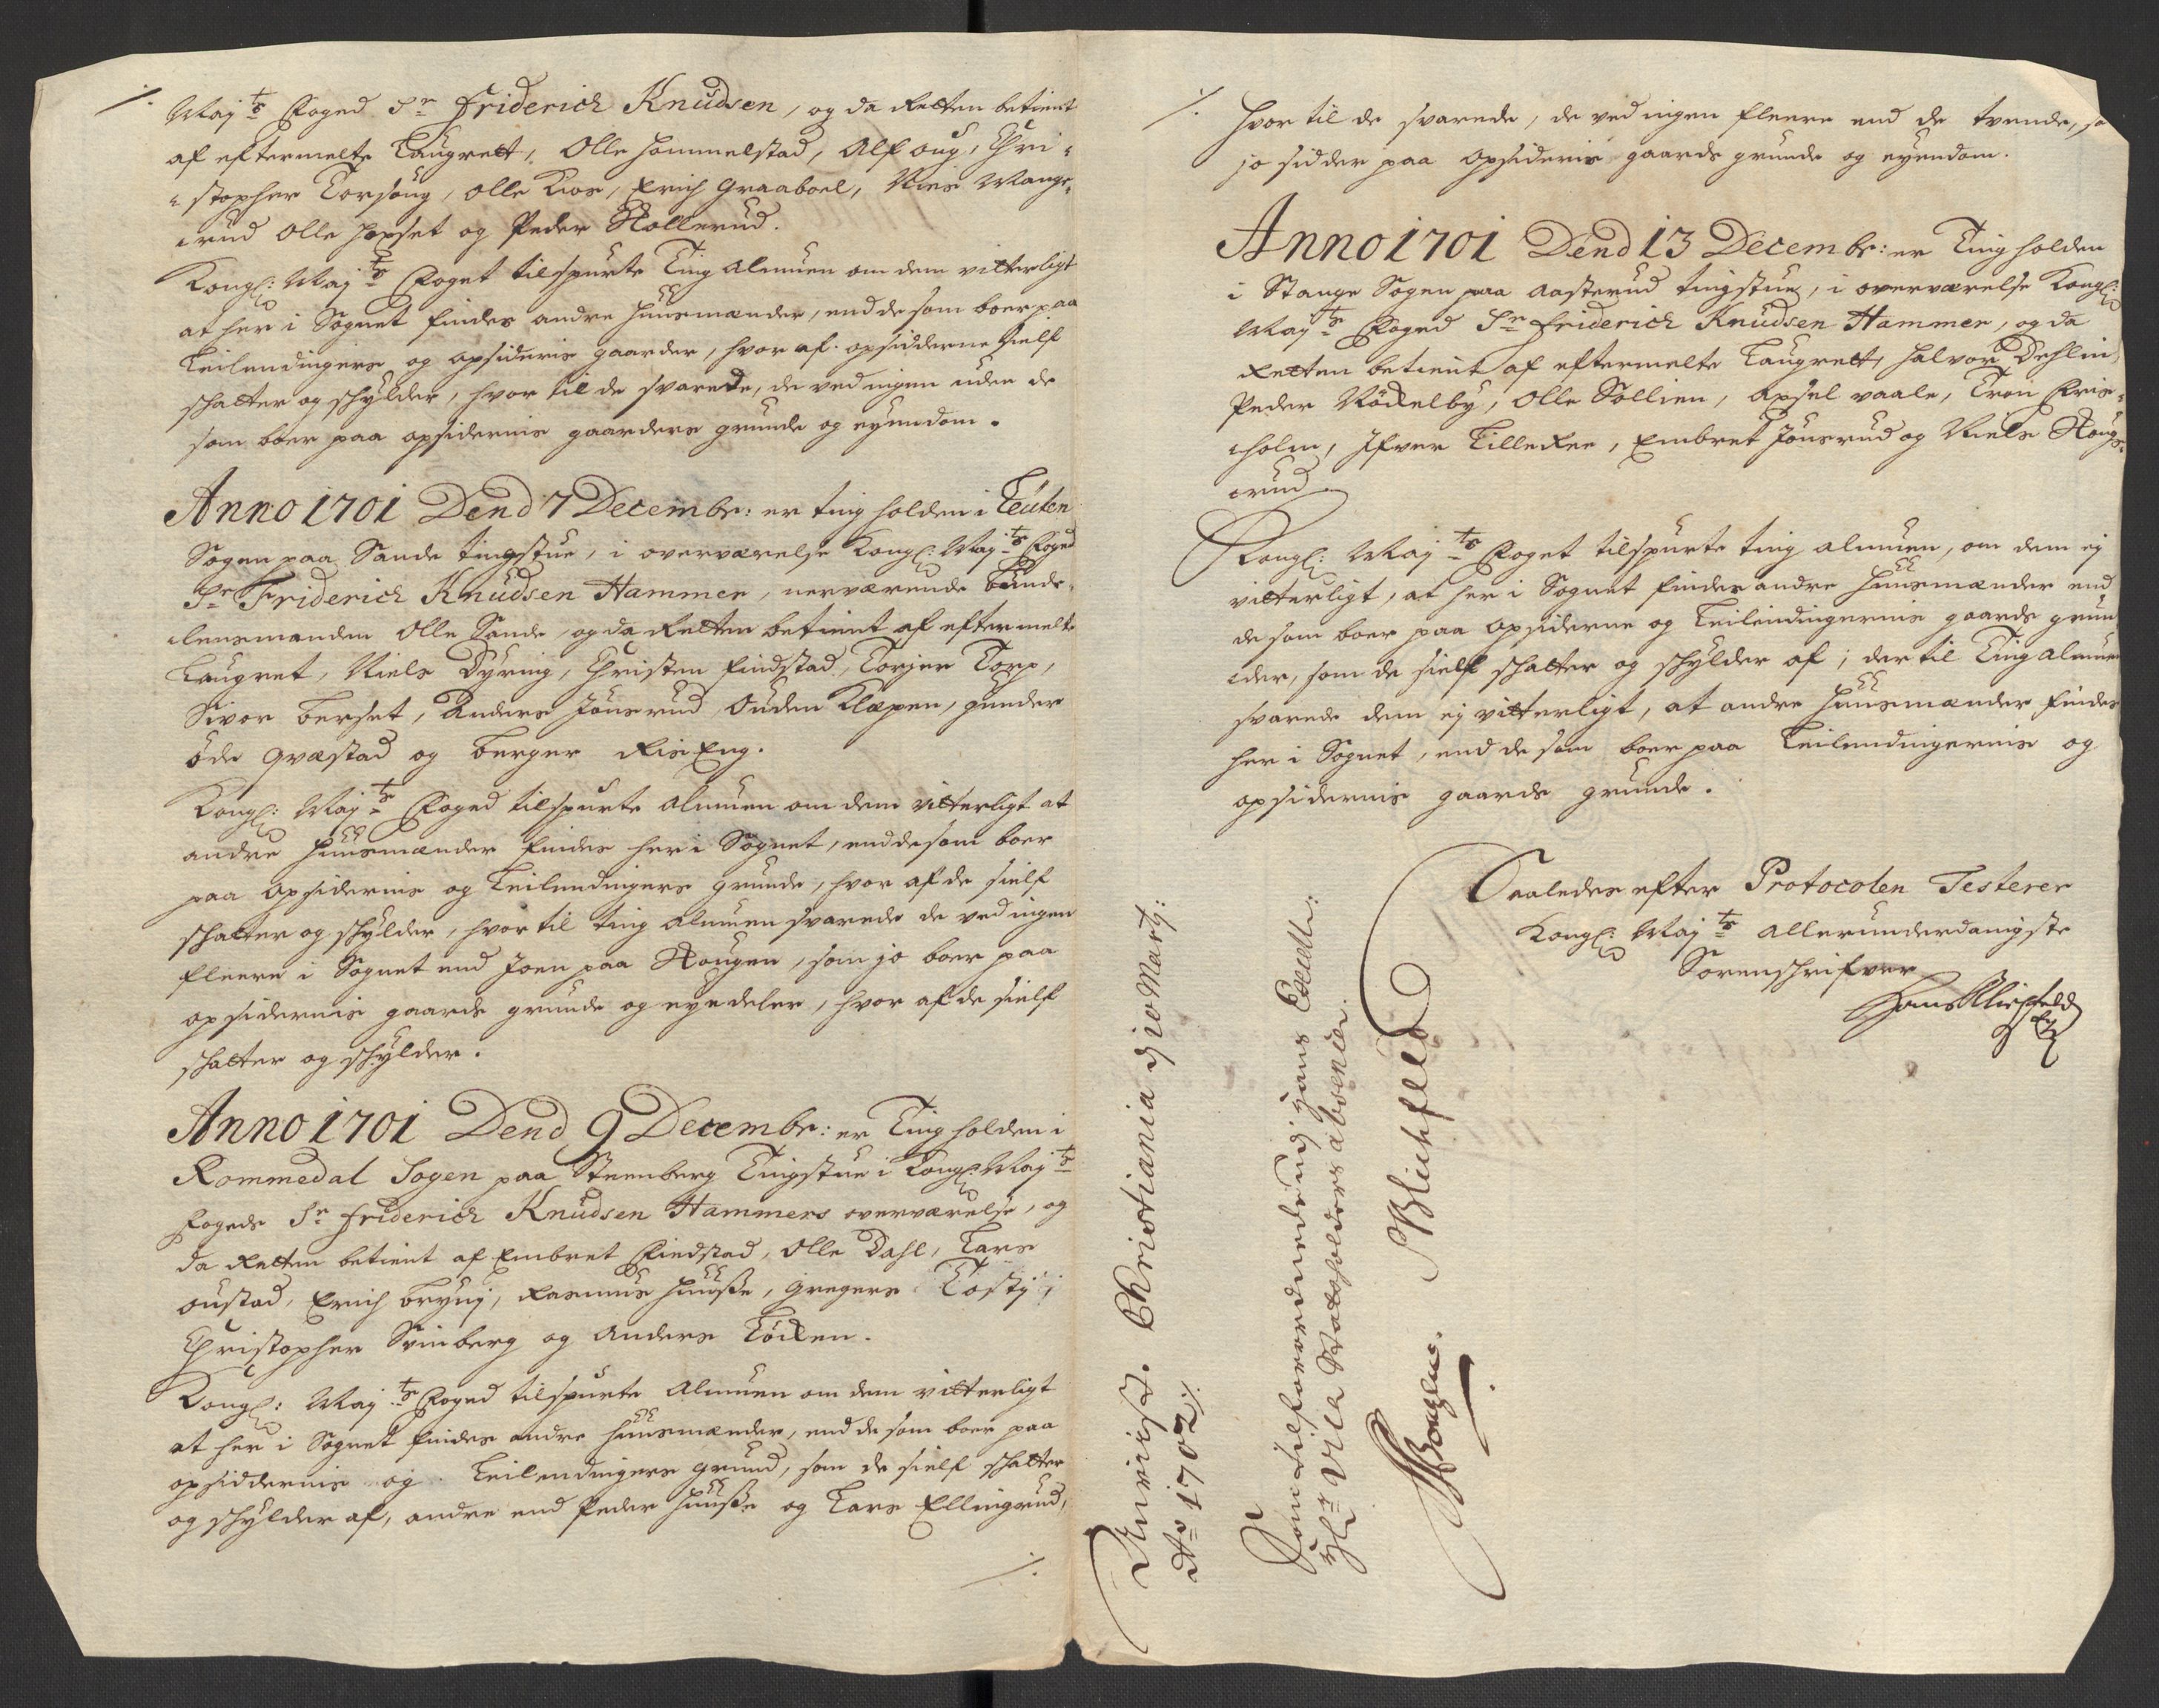 ./. Maj:ts Foged Sr Friderich Knudsen, og da Retten betient
af eftermelte Laugrett, Olle Hommelstad, Alf oug, Chri-
-stopher Torshoug, Olle Kios, Erich Graaboel, Nies Mange-
-rud Olle Hoxset og Peder Skollerud.
Kongl: Maj:ts Foget tilspurte Ting Almuen om dem vitterligt
at her i Sognet findes andre Huusmænder, end de som boer paa
Leilendingers og opsideris gaarder, hvor af opsidderne sielf
schatter og schylder, hvor til de svarede, de ved ingen uden de
som boer paa opsidernis gaarders grunde og eyendom.
Anno 1701 Dend 7 Decembr: er ting holden i Leuten
Sogen paa Sande tingstue, i overværelse Kongl: Maj:ts Foged
Sr Friderich Knudsen Hammer, nerværende Bunde-
-lensmanden Olle Sande, og da Retten betient af eftermelte
Laugret, Niels Dyring, Christen Findstad, Torger Torp,
Sivor Berset, Anders Jønsrud, Ouden Klæpen, Gunder
øde Qvæstad og Berger RisEng.
Kongl: Maj:ts Foged tilspurte Almuen om dem vitterligt at
andre Huusmænder findes her i Sognet, end de som boer
paa opsidernis og Leilendingers grunde, hvor af de sielf
schatter og schylder, hvor til ting almuen svarede de ved ingen
fleere i Sognet end Joen paa Hougen, som jo boer paa
opsidernis gaards grunde og eyedeler, hvor af de sielf
schatter og schylder.
Anno 1701 Dend 9 Decembr: er Ting holden i
Rommedal Sogen paa Steenberg Tingstue i Kongl: Maj:ts
Fogeds Sr Friderich Knudsen Hammers overværelse, og
da Retten betient af Embret Findstad, Olle Dahl, Lars
oustad, Erich Bryni, Rasmus Huusse, Gregers Tostj
Christopher Svinberg og Anders Løcken.
Kongl: Maj:ts Foged tilspurte Almuen om dem vitterligt
at her i Sognet findes andre Huusmænder, end de som boer paa
opsiddernis og Leilendingers grund, som de sielf schatter
og schylder af, andre end Peder Huusse og Lars Ellingrud,
./.
./. Hvor til de svarede, de ved ingen fleere end de tvende, so
jo sidder paa opsideris gaards grunde og eyendom.
Anno 1701 Dend 13 Decembr: er Ting holden
i Stange Sogen paa Aasterud tingstue, i overværelse Kongl:
Maj:ts Foged Sr Friderich Knudsen Hammer, og da
Retten betient af eftermelte Laugrett, Halvor Dehlin,
Peder Röckelby, Olle Sollien, Axsel vaale, Tron Friis-
-holm, Ifver Lillecker, Embret Jønsrud og Niels Hougs-
-rud
Kongl: Maj:ts Foget tilspurte ting almuen, om dem ej
vitterligt, at her i Sognet findes andre Huusmænder end
de som boer paa opsiderne og Leilendingernis gaards grun
-der, som de sielf schatter og schylder af; der til Ting almuen
svarede dem ej vitterligt, at andre Huusmænder findes
her i Sognet, end de som boer paa Leilendingernis og
opsidernis gaards grunde.
Saaledes efter Protocolen Testerer
Kongl: Maj:ts allerunderdanigste
Sorenschrifver
Hans Blichfeld
Christiania d 10 Martj:
Ao 1702 ./.
Som tilforordnede udj hans Excell:
Hr Vice Statholders absence.
Blichfeld